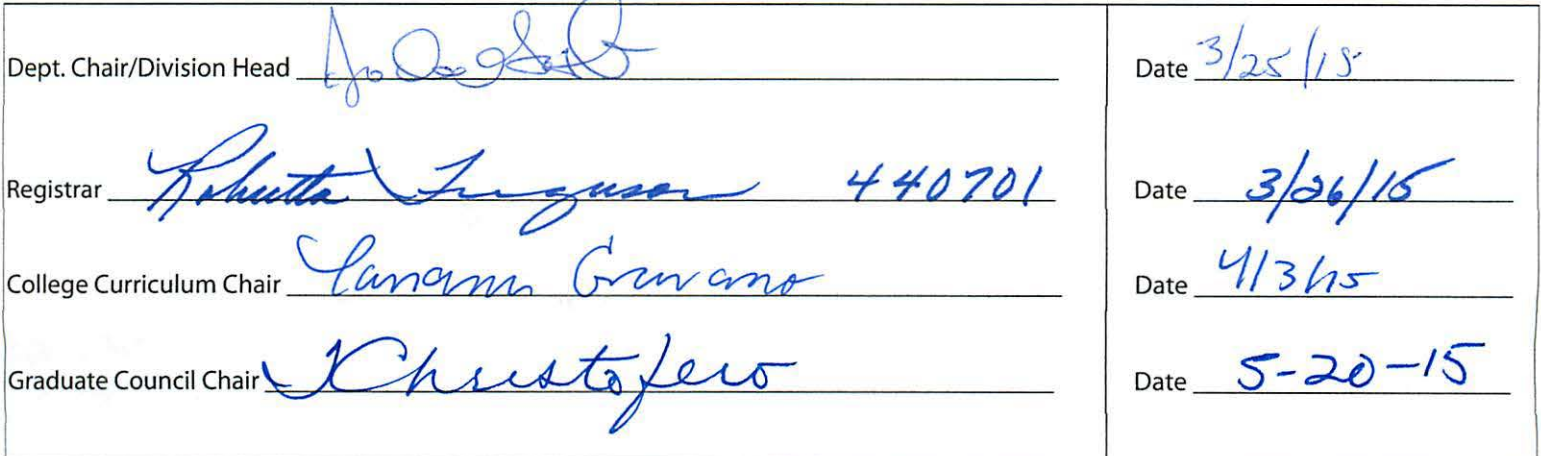 Dept. Chair/Division Head Date 3/25/15
Registrar Roberta Ferguson 440701 Date 3/26/15
College Curriculum Chair Date 4/3/15
Graduate Council Chair Christofero Date 5-20-15